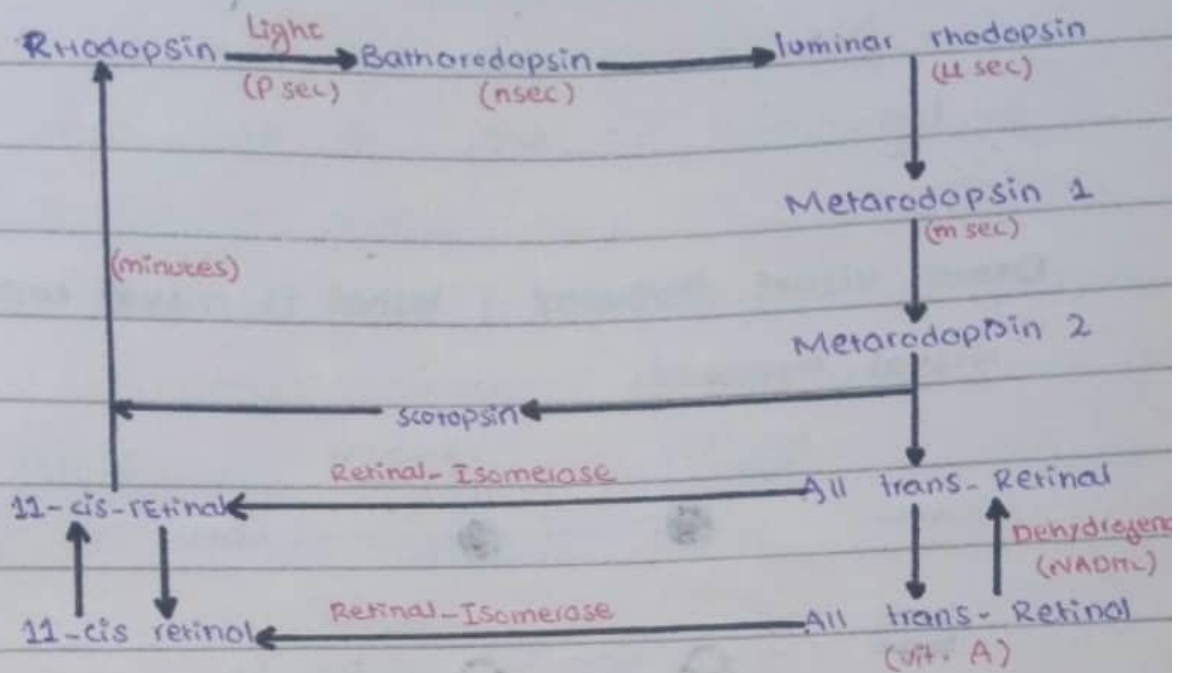 Light
RHodopsin Bathoredopsin luminar rhodopsin
(P sec) (nsec) (u sec)
Metarodopsin 1
(m sec)
(minutes)
Metarodopsin 2
scotopsin
Retinal-Isomerase
11-cis-rEtinal All trans-Retinal
Dehydrogena
Retinal-Isomerase
11-cis retinol All trans-Retinol
(vit. A)